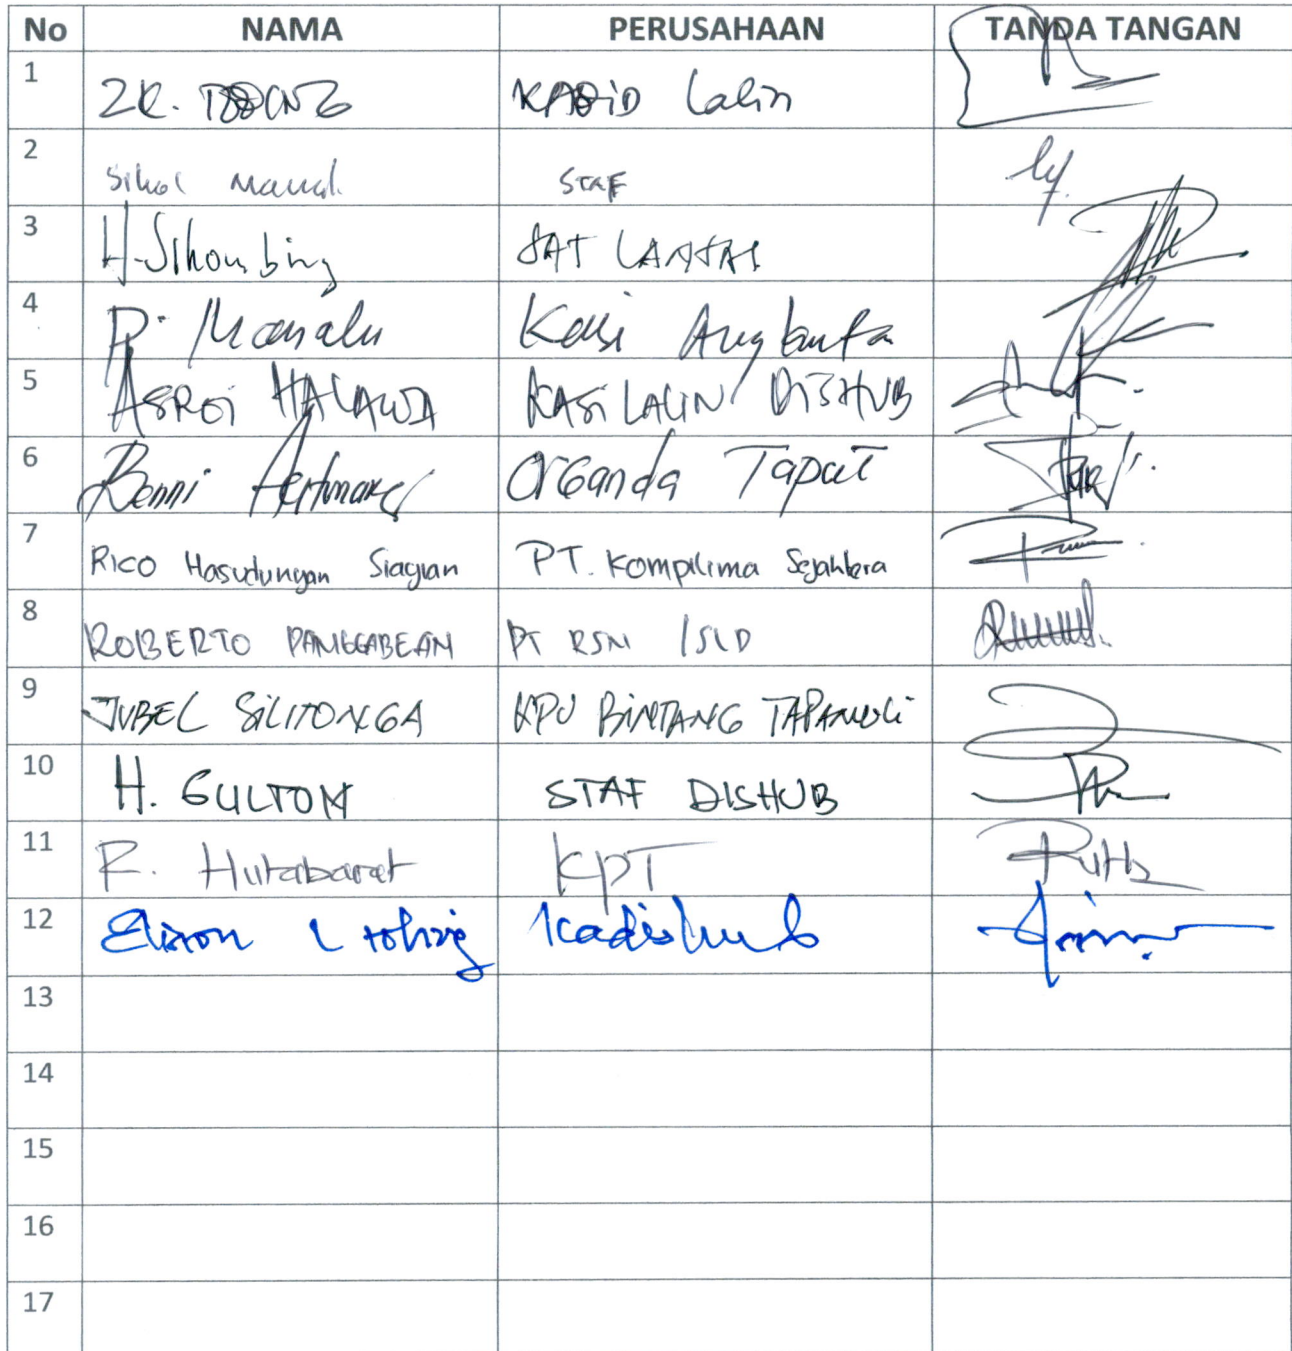 No NAMA PERUSAHAAN TANDA TANGAN
1 KABID Lalin
2 STAF
3 H. Sihombing SAT LANTAS
4 P. Manalu Kasi
5 HALAWA KASI LALIN DISHUB
6 Benni Organda Taput
7 Rico Hasudungan Siagian PT. Kompilima Sejahtera
8 ROBERTO PANGGABEAN PT RSN
9 JUBEL SILITONGA KPU BINTANG TAPANULI
10 H. GULTOM STAF DISHUB
11 R. Hutabarat KPT
12 Kadishub
13
14
15
16
17